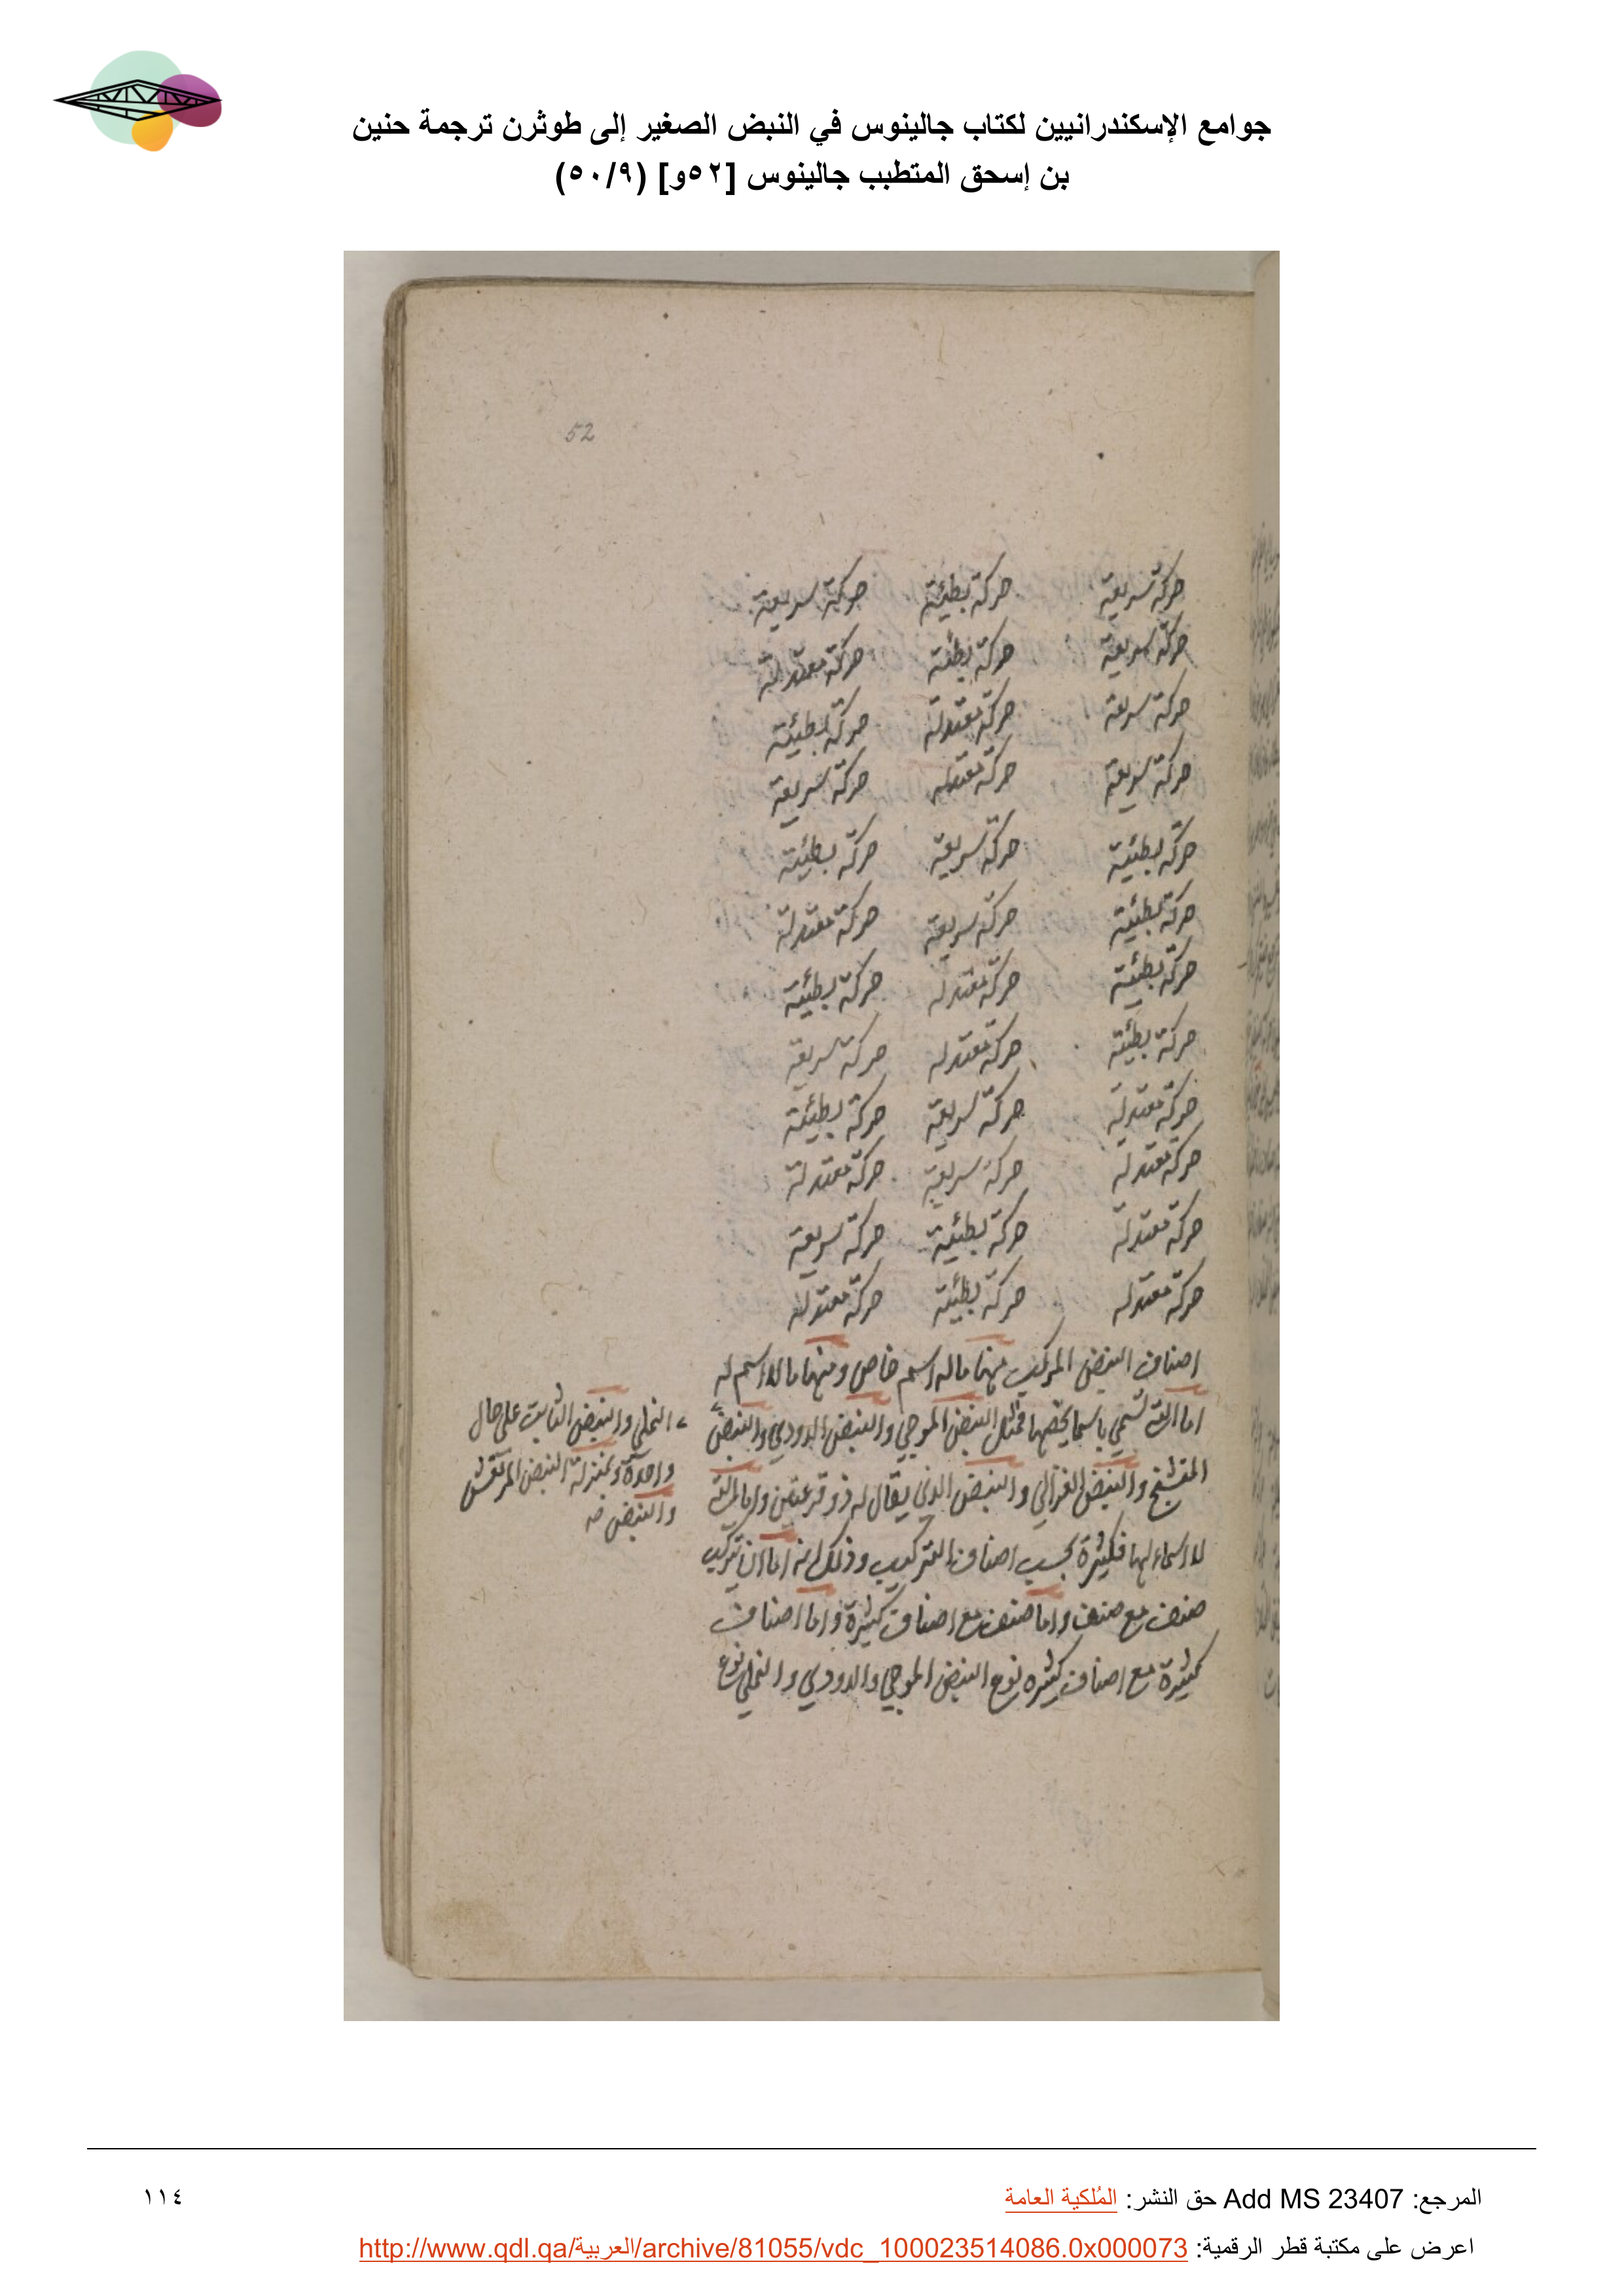 جوامع الإسكندرانيين لكتاب جالينوس في النبض الصغير إلى طوثرن ترجمة حنين
بن إسحق المتطبب جالينوس [٥٢و] (٥٠/٩)
52
حركة سريعة حركة بطيئة حركة سريعة
حركة سريعة حركة بطئة حركة معتدلة
حركة سريعة حركة معتدلة حركة بطيئة
حركة سريعة حركة معتدله حركة سريعة
حركة بطيئة حركة سريعة حركة بطيئة
حركة بطيئة حركة سريعة حركة معتدلة
حركة بطيئة حركة معتدله حركة بطيئة
حركة بطيئة حركة معتدله حركة سريعة
حركة معتدلة حركة سريعة حركة بطيئة
حركة معتدلة حركة سريعة حركة معتدلة
حركة معتدلة حركة بطيئة حركة سريعة
حركة معتدله حركة بطيئة حركة معتدله
اصناف النبض المركب منها ما له اسم خاص ومنها ما لا اسم له
اما التي تسمي باسما يخصها فمثل النبض الموجي والنبض الدودي والنبض
النملي والنبض الثابت على حال
واحدة وبمنزلة النبض المرتعش
والنبض
المتشنج والنبض الغزالي والنبض الذي يقال له ذو قرعتين واما التي
لا اسماء لها فكثيرة بحسب اصناف التركيب وذلك انه اما ان تركب
صنف مع صنف واما صنف مع اصناف كثيرة واما اصناف
كثيرة مع اصناف كثيره نوع النبض الموجي والدودي والنملي نوع
المرجع: Add MS 23407 حق النشر: المُلكية العامة
١١٤
اعرض على مكتبة قطر الرقمية: http://www.qdl.qa/العربية/archive/81055/vdc_100023514086.0x000073